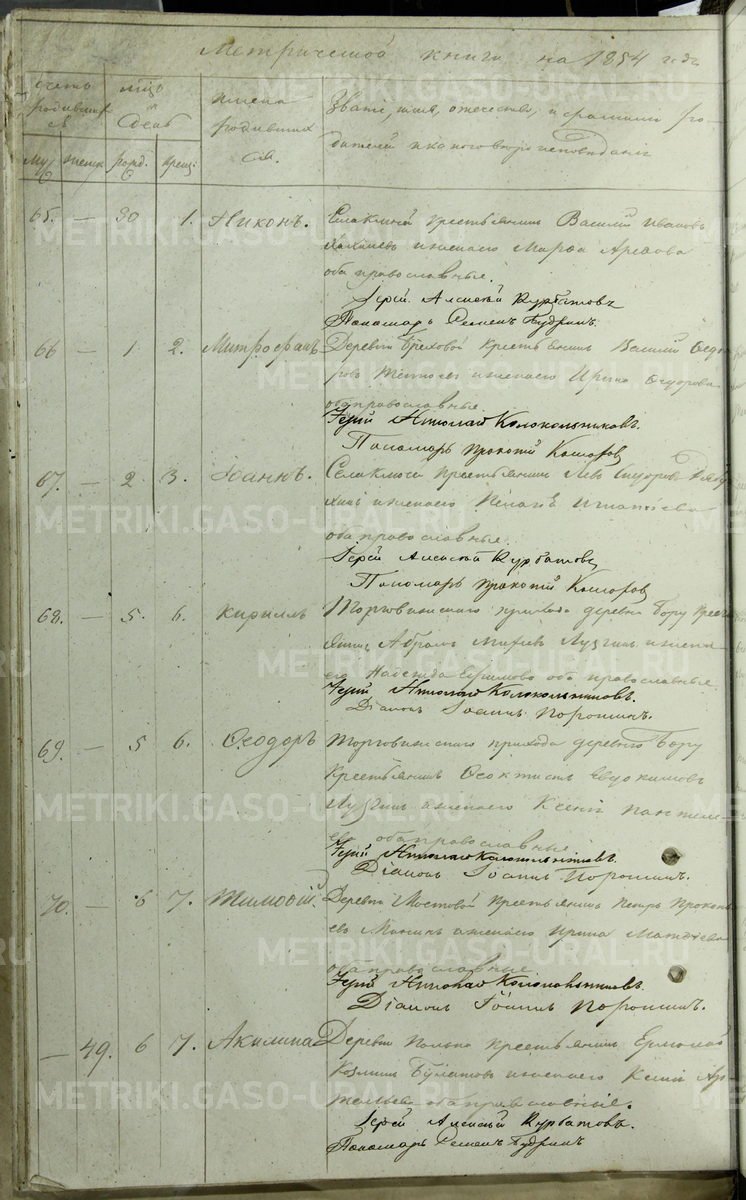 Метрической книги на 1854 годъ
счетъ родившихся
мѣсяцъ и день
имена родившихся.
Званіе, имя, отечество, и фамилія ро-
дителей и какого вѣроисповѣданія
Муж женск рожд. крещ.
65. — 30 1. Никонъ. крестьянинъ Василій Ивановъ
и жена его Марѳа
оба православные.
Іерей Алексѣй Курбатовъ
Пономарь Семенъ Будринъ.
66 — 1. 2. Митрофанъ Деревни крестьянинъ Василій Ѳедо-
ровъ и жена его Ирина Ѳедорова
оба православные
Іерей Николай Колокольниковъ.
Пономарь Прокопій Комаровъ
67. — 2 3. Іоаннъ. крестьянинъ Левъ
и жена его Пелагія Игнатьева
оба православные.
Іерей Алексѣй Курбатовъ
Пономарь Прокопій Комаровъ
68. — 5. 6. Кириллъ Торговижскаго прихода деревни Бору крест-
янинъ Абрамъ Лузгинъ и жена
его Надежда Ефимова оба православные
Іерей Николай Колокольниковъ.
Діаконъ Іоаннъ Порошинъ.
69. — 5 6. Ѳеодоръ Торговижскаго прихода деревни Бору
Крестьянинъ Ѳеоктистъ Евдокимовъ
Лузгинъ и жена его Ксенія Пантелее-
ва оба православные
Іерей Николай Колокольниковъ.
Діаконъ Іоаннъ Порошинъ.
70. — 6 7. Тимоѳей. Деревни Мостовой крестьянинъ Петръ Прокопь-
евъ и жена его Ирина Матвѣева
оба православные
Іерей Николай Колокольниковъ.
Діаконъ Іоаннъ Порошинъ.
— 49. 6 7. Акилина Деревни крестьянинъ Ермолай
Козминъ Булатовъ и жена его Ксенія Ар-
оба православные.
Іерей Алексѣй Курбатовъ.
Пономарь Семенъ Будринъ
METRIKI.GASO-URAL.RU